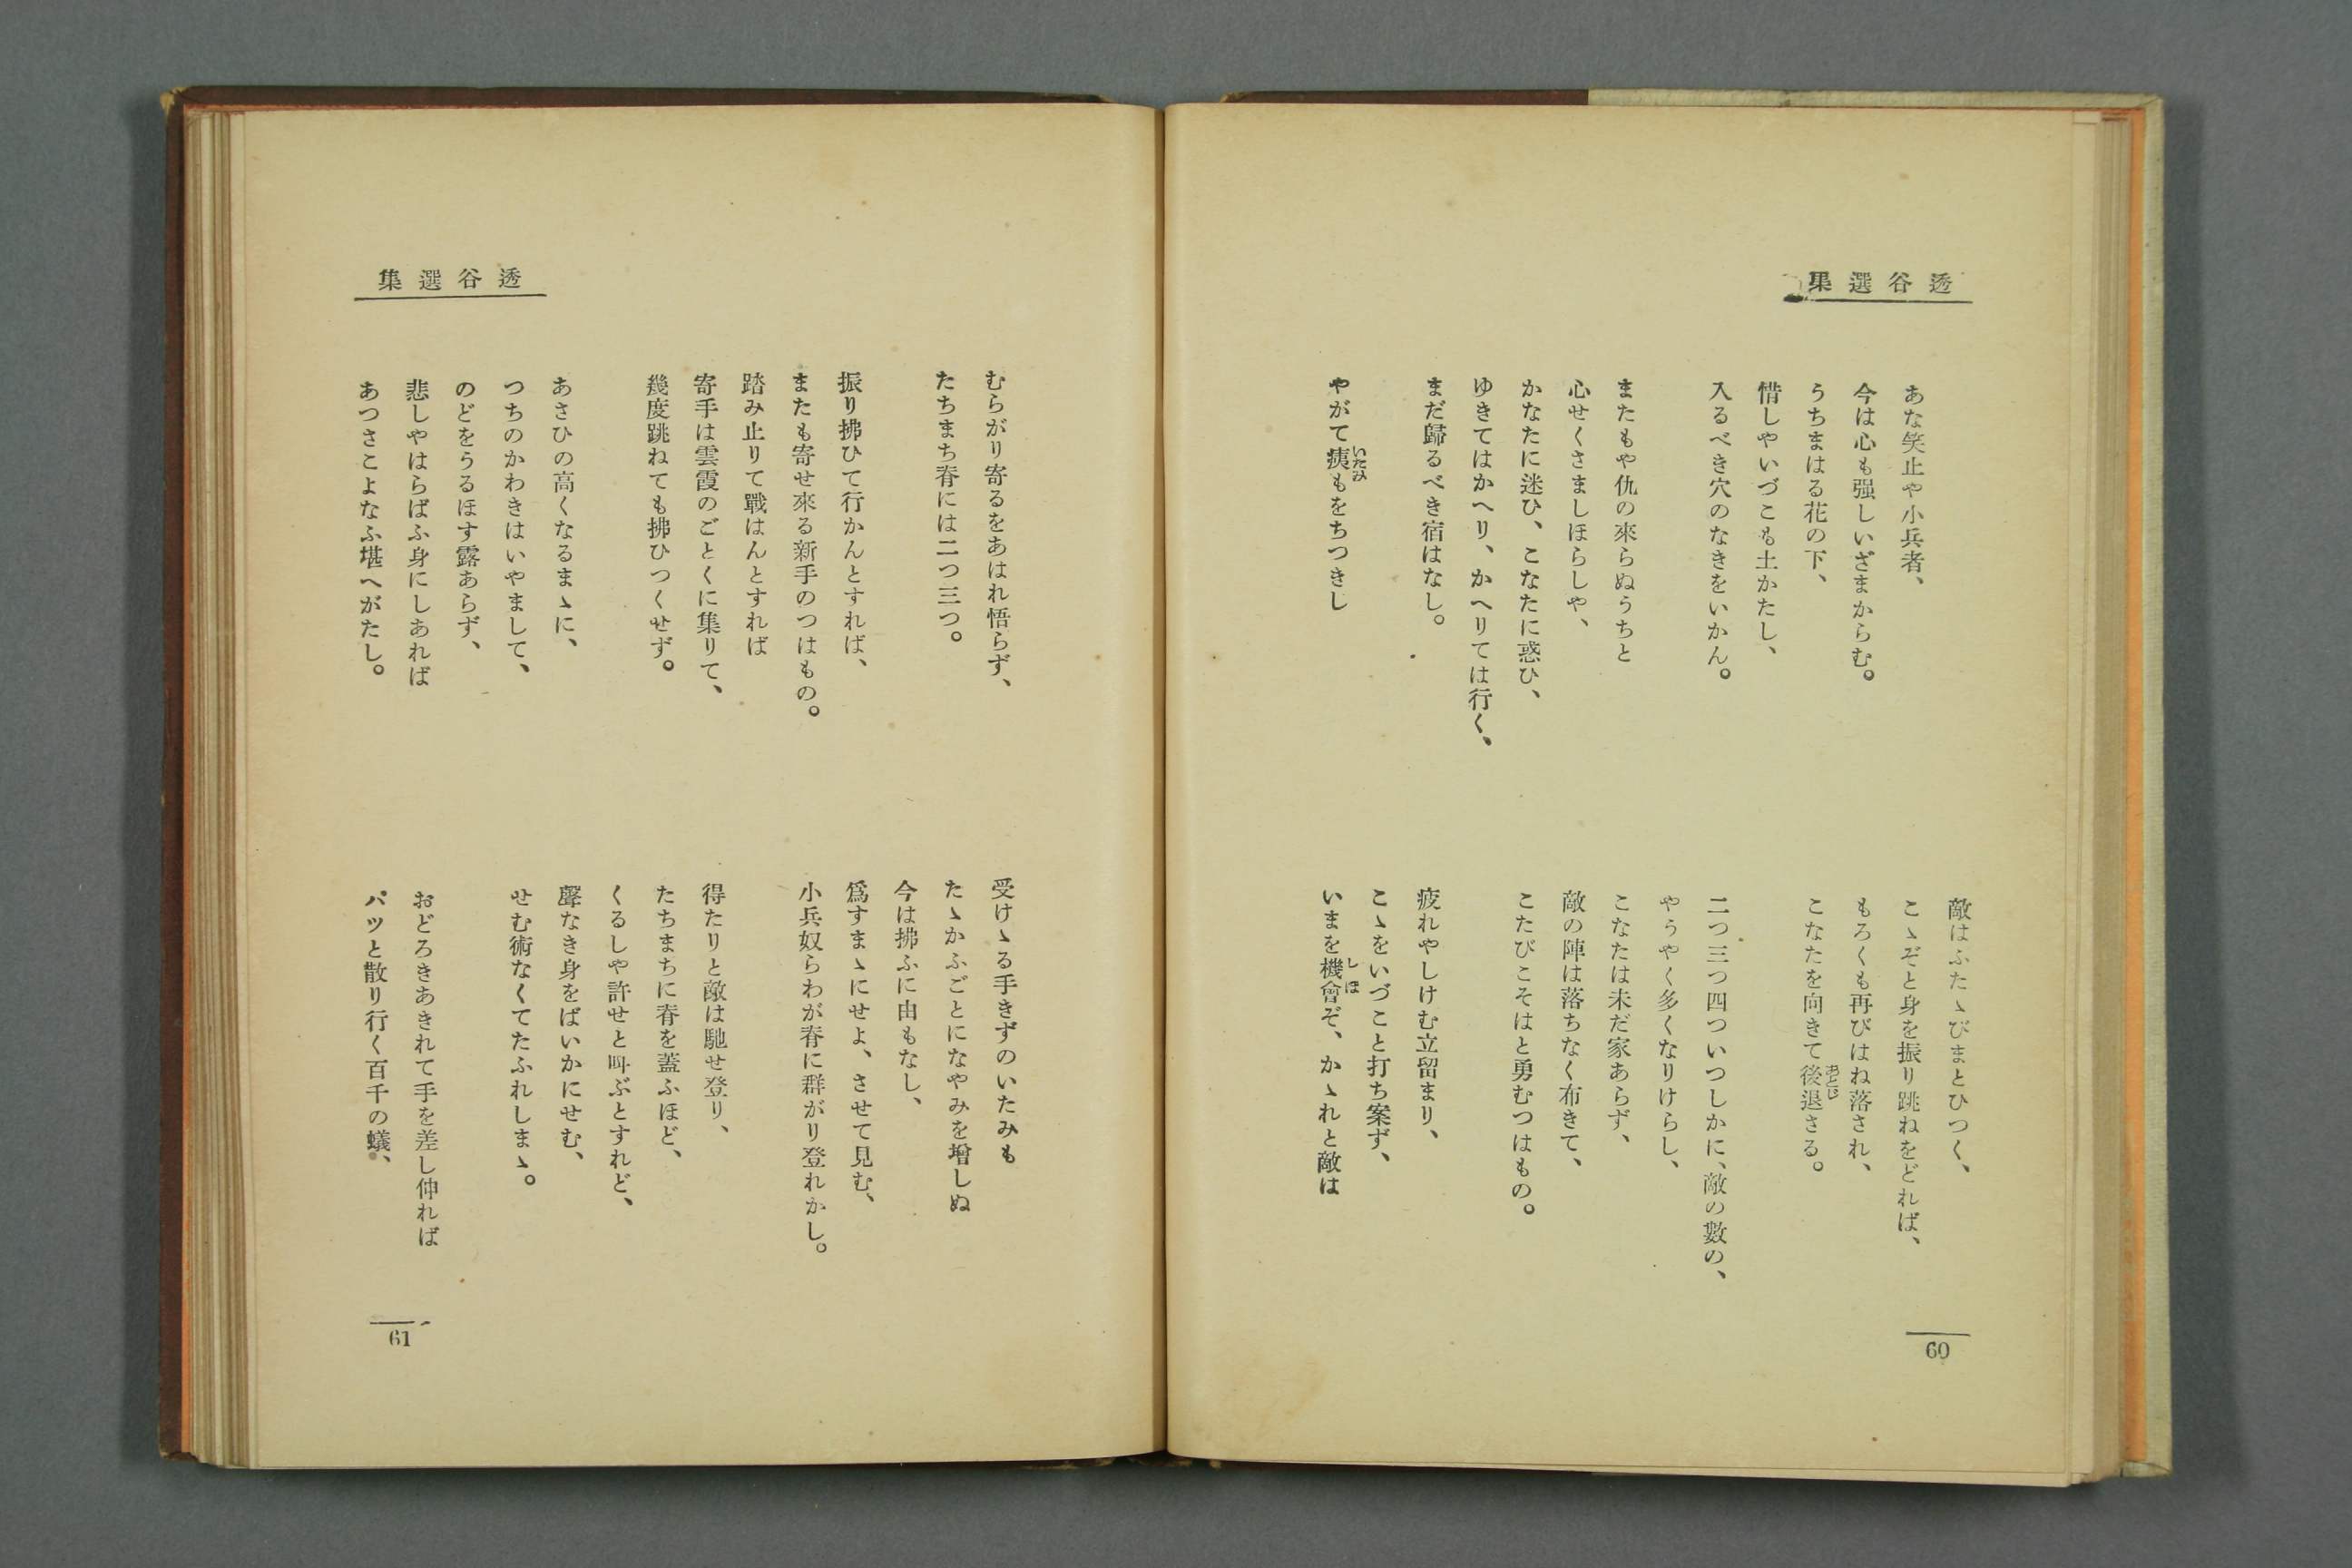 透谷選集
あな笑止や小兵者、
今は心も强しいざまからむ。
うちまはる花の下、
惜しやいづこも土かたし、
入るべき穴のなきをいかん。
またもや仇の來らぬうちと
心せくさましほらしや、
かなたに迷ひ、こなたに惑ひ、
ゆきてはかへり、かへりては行く、
まだ歸るべき宿はなし。
やがて痍いたみもをちつきし
敵はふたゝびまとひつく、
こゝぞと身を振り跳ねをどれば、
もろくも再びはね落され、
こなたを向きて後退あとじさる。
二つ三つ四ついつしかに、敵の數の、
やうやく多くなりけらし、
こなたは未だ家あらず、
敵の陣は落ちなく布きて、
こたびこそはと勇むつはもの。
疲れやしけむ立留まり、
こゝをいづこと打ち案ず、
いまを機會しほぞ、かゝれと敵は
60
透谷選集
むらがり寄るをあはれ悟らず、
たちまち脊には二つ三つ。
振り拂ひて行かんとすれば、
またも寄せ來る新手のつはもの。
踏み止りて戰はんとすれば
寄手は雲霞のごとくに集りて、
幾度跳ねても拂ひつくせず。
あさひの高くなるまゝに、
つちのかわきはいやまして、
のどをうるほす露あらず、
悲しやはらばふ身にしあれば
あつさこよなふ堪へがたし。
受けゝる手きずのいたみも
たゝかふごとになやみを増しぬ
今は拂ふに由もなし、
爲すまゝにせよ、させて見む、
小兵奴らわが脊に群がり登れかし。
得たりと敵は馳せ登り、
たちまちに脊を蓋ふほど、
くるしや許せと叫ぶとすれど、
聲なき身をばいかにせむ、
せむ術なくてたふれしまゝ。
おどろきあきれて手を差し伸れば
パッと散り行く百千の蟻、
61